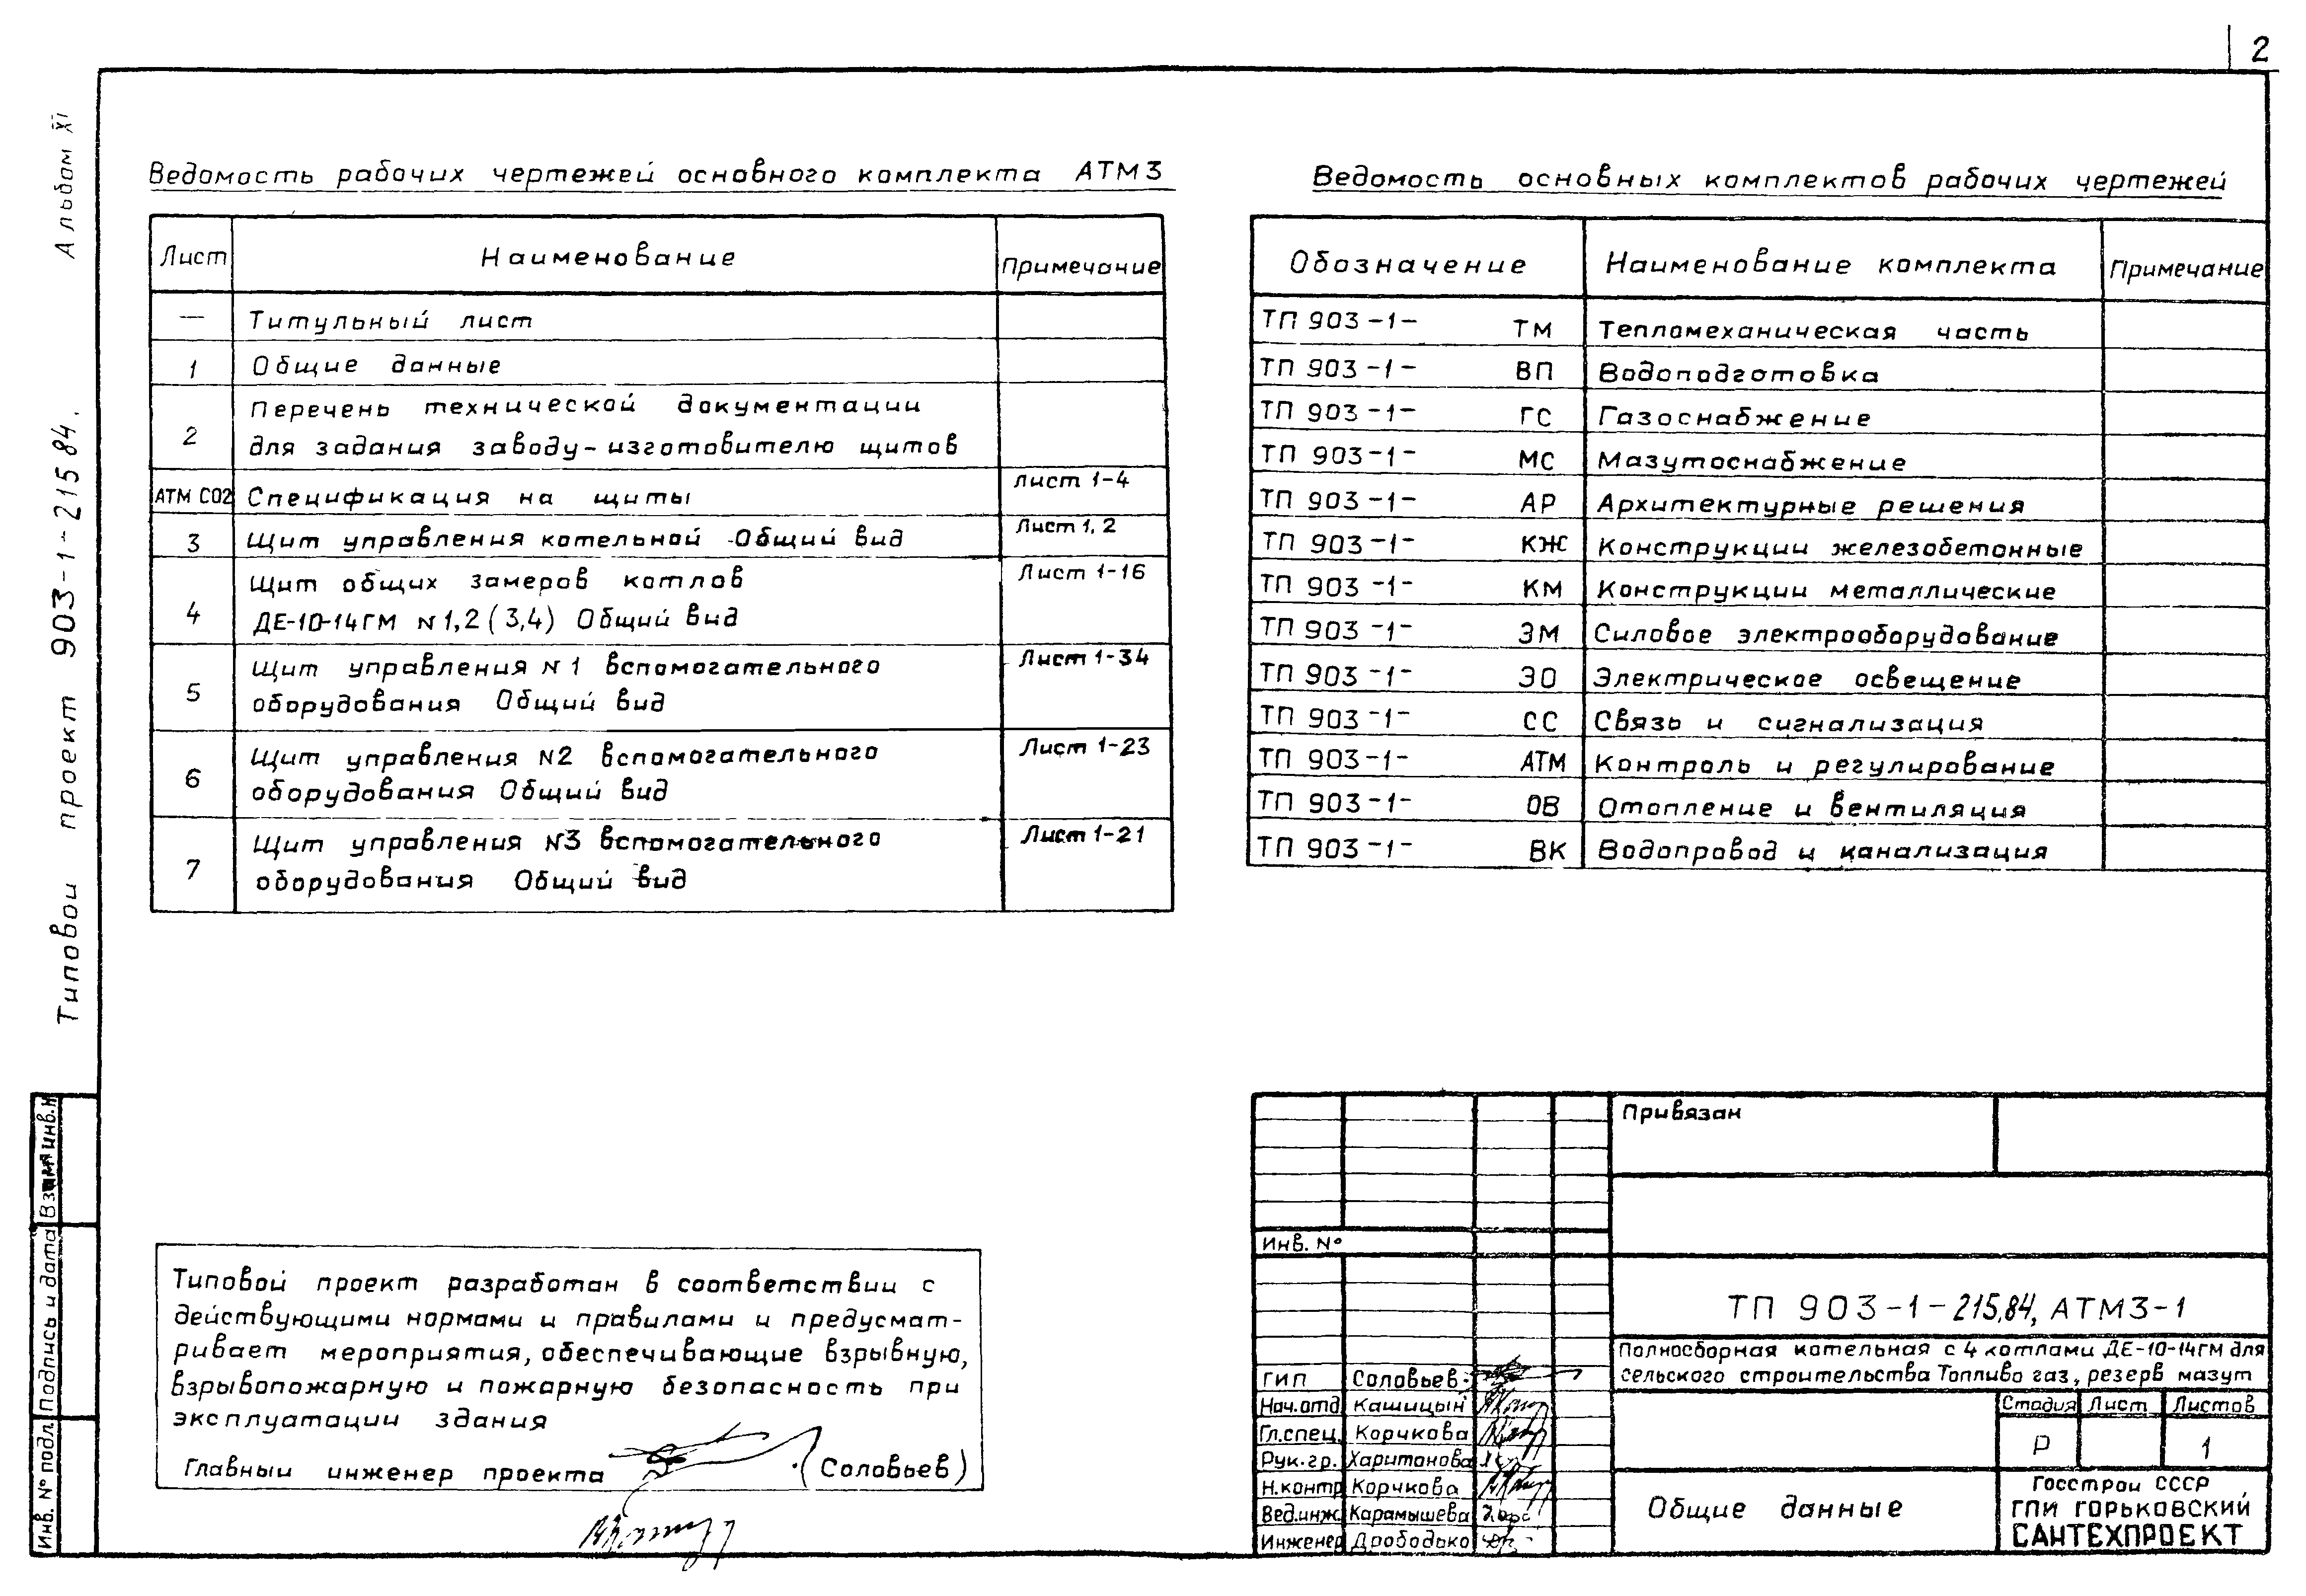 2
Альбом XI
Типовой проект 903-1-215 84.
Ведомость рабочих чертежей основного комплекта АТМ3
Лист Наименование Примечание
— Титульный лист
1 Общие данные
2 Перечень технической документации
для задания заводу-изготовителю щитов
АТМ СО2 Спецификация на щиты Лист 1-4
3 Щит управления котельной Общий вид Лист 1, 2
4 Щит общих замеров котлов Лист 1-16
ДЕ-10-14ГМ N 1,2 (3,4) Общий вид
5 Щит управления N 1 вспомогательного Лист 1-34
оборудования Общий вид
6 Щит управления N2 вспомогательного Лист 1-23
оборудования Общий вид
7 Щит управления N3 вспомогательного Лист 1-21
оборудования Общий вид
Ведомость основных комплектов рабочих чертежей
Обозначение Наименование комплекта Примечание
ТП 903-1- ТМ Тепломеханическая часть
ТП 903-1- ВП Водоподготовка
ТП 903-1- ГС Газоснабжение
ТП 903-1- МС Мазутоснабжение
ТП 903-1- АР Архитектурные решения
ТП 903-1- КЖ Конструкции железобетонные
ТП 903-1- КМ Конструкции металлические
ТП 903-1- ЭМ Силовое электрооборудование
ТП 903-1- ЭО Электрическое освещение
ТП 903-1- СС Связь и сигнализация
ТП 903-1- АТМ Контроль и регулирование
ТП 903-1- ОВ Отопление и вентиляция
ТП 903-1- ВК Водопровод и канализация
Типовой проект разработан в соответствии с
действующими нормами и правилами и предусмат-
ривает мероприятия, обеспечивающие взрывную,
взрывопожарную и пожарную безопасность при
эксплуатации здания
Главный инженер проекта (Соловьев)
Инв. N° подл. Подпись и дата Взам инв.N
Привязан
Инв. N°
ТП 903-1-215,84, АТМ3-1
Полносборная котельная с 4 котлами ДЕ-10-14ГМ для
сельского строительства Топливо газ, резерв мазут
ГИП Соловьев
Нач.отд Кашицын
Гл.спец. Корчкова
Рук.гр. Харитонова
Н.контр Корчкова
Вед.инж. Карамышева
Инженер Дрободько
Стадия Лист Листов
Р 1
Общие данные
Госстрой СССР
ГПИ ГОРЬКОВСКИЙ
САНТЕХПРОЕКТ